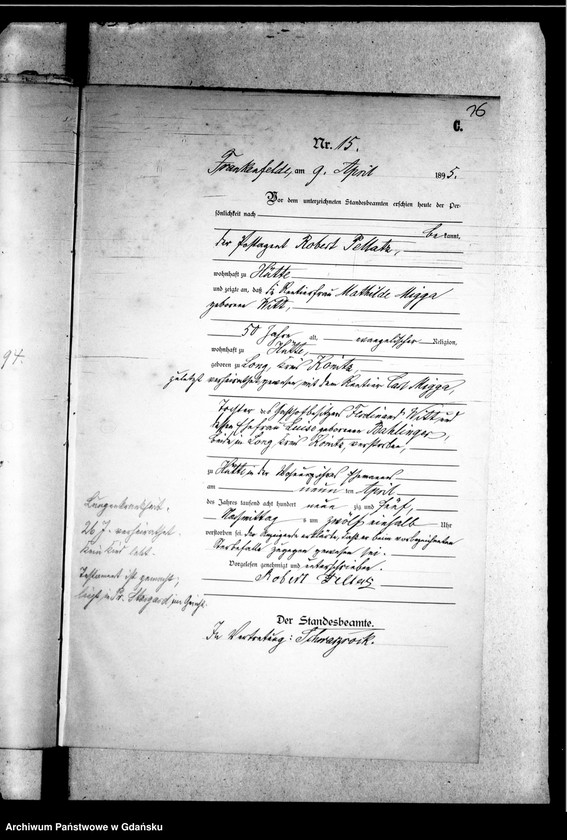 76
C.
Nr. 15.
Frankenfelde, am 9. April 1895.
Vor dem unterzeichneten Standesbeamten erschien heute der Per-
sönlichkeit nach
be kannt,
der Postagent Robert Pellatz,
wohnhaft zu Hütte
und zeigte an, daß die Rentierfrau Mathilde Migga
geborene Witt,
50 Jahre alt, evangelischer Religion,
wohnhaft zu Hütte,
geboren zu Long, Kreis Konitz,
zuletzt verheirathet gewesen mit dem Rentier Carl Migga,
Tochter des Gasthofbesitzers Ferdinand Witt und
dessen Ehefrau Luise geborenen
beide in Long, Kreis Konitz, verstorben,
zu Hütte in der Wohnung ihres Ehemannes
am neunten April
des Jahres tausend acht hundert neun zig und fünf,
Nachmittag s um zwölf einhalb Uhr
verstorben sei. Der Anzeigende erklärte, daß er beim vorbezeichneten
Sterbefalle zugegen gewesen sei.
Vorgelesen, genehmigt und unterschrieben.
Robert Pellatz
Der Standesbeamte.
In Vertretung: Schwarzrock.
94.
Lungenkrankheit.
26 J. verheirathet.
Kein Kind lebt.
Testament ist gemacht;
liegt in Pr. Stargard im Gericht.
Archiwum Państwowe w Gdańsku